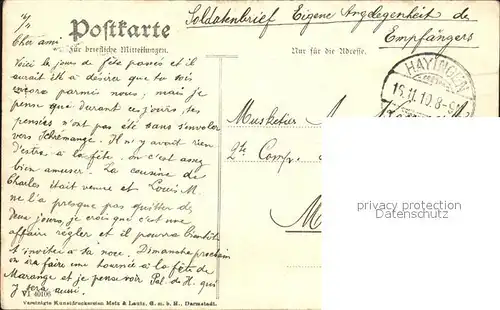 16/11
Postkarte
Soldatenbrief Eigene Angelegenheit de
Empfängers
Für briefliche Mitteilungen.
Nur für die Adresse.
Cher ami
Voici le jours de fête passés et il
aurait été à désirer que tu sois
encore parmi nous; mais je
pense que durant ces jours, tes
pensées n'ont pas été sans s'envoler
vers Schrémange. Il n'y avait rien
d'extra à la fête. on c'est assez
bien amuser. La cousine de
Charles était venue et Louis M.
ne l'a presque pas quitter de
Deux jours, je crois que c'est une
affaire régler et il pourra bientôt
t'inviter à sa noce. Dimanche prochain
on ira faire une tournée à la fête de
Marange et je pense voir Pol de H. qui
y sera aussi.
HAYINGEN
16.11.10.8-9
Musketier
2te Comp.
M
privacy protection
Datenschutz
VI 40106
Vereinigte Kunstdruckereien Metz & Lautz, G. m. b. H., Darmstadt.